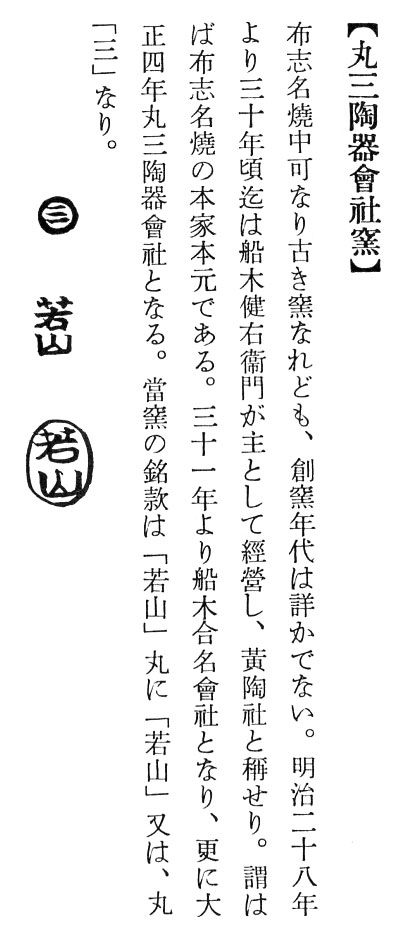 【丸三陶器會社窯】
布志名燒中可なり古き窯なれども、創窯年代は詳かでない。明治二十八年
より三十年頃迄は船木健右衞門が主として經營し、黃陶社と稱せり。謂は
ば布志名燒の本家本元である。三十一年より船木合名會社となり、更に大
正四年丸三陶器會社となる。當窯の銘款は「若山」丸に「若山」又は、丸
「三」なり。
三
若山
若山